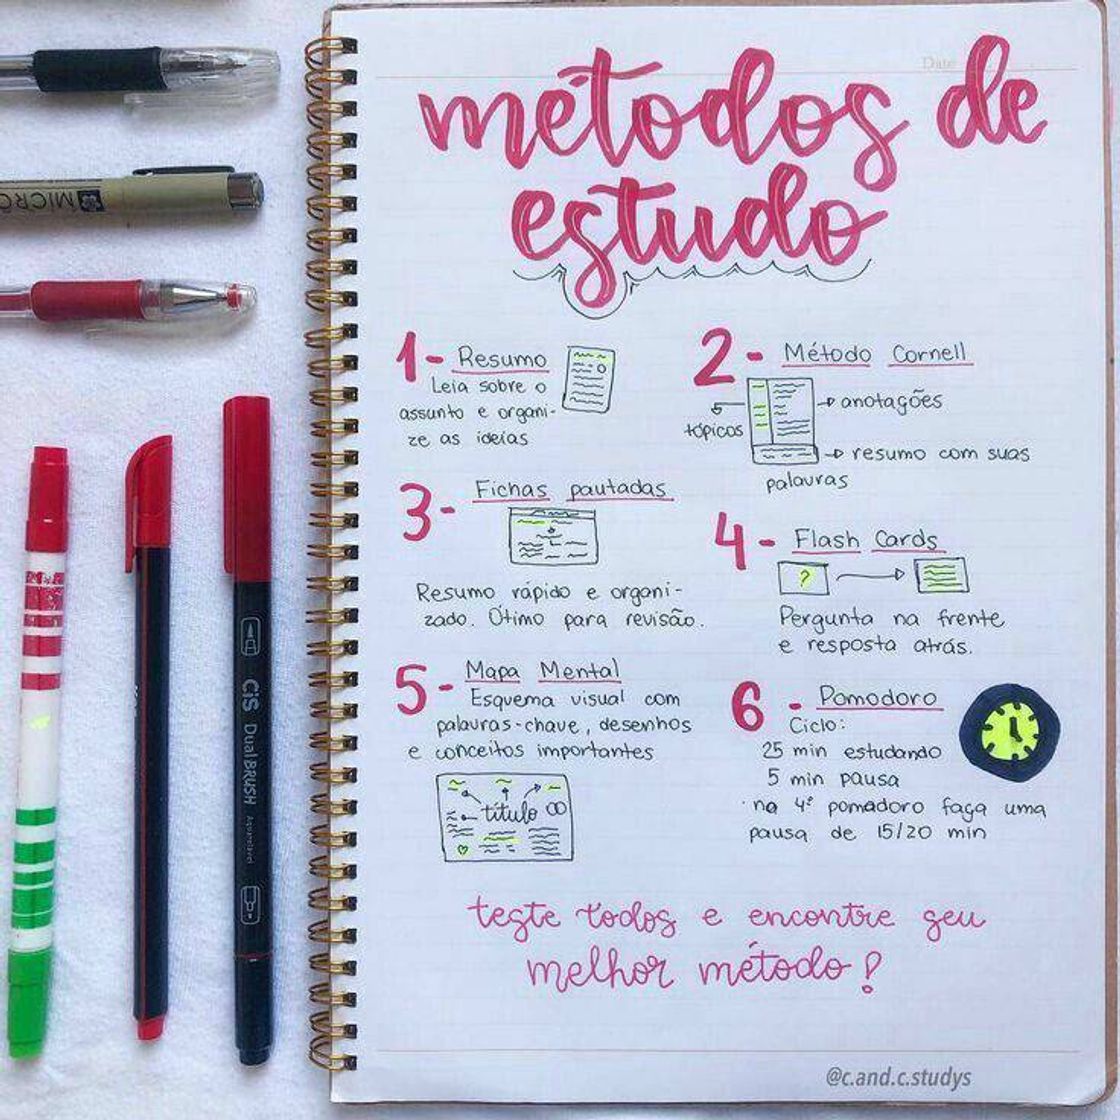 Date
métodos de
estudo
1- Resumo
Leia sobre o
assunto e organi-
ze as ideias
2- Método Cornell
anotações
tópicos
resumo com suas
palavras
3- Fichas pautadas
Resumo rápido e organi-
zado. Ótimo para revisão.
4- Flash Cards
?
Pergunta na frente
e resposta atrás.
5- Mapa Mental
Esquema visual com
palavras-chave, desenhos
e conceitos importantes
título
6- Pomodoro
Ciclo:
25 min estudando
5 min pausa
no 4º pomadoro faça uma
pausa de 15/20 min
teste todos e encontre seu
melhor método!
@c.and.c.studys
MICRO
CiS DualBRUSH Aquarelável